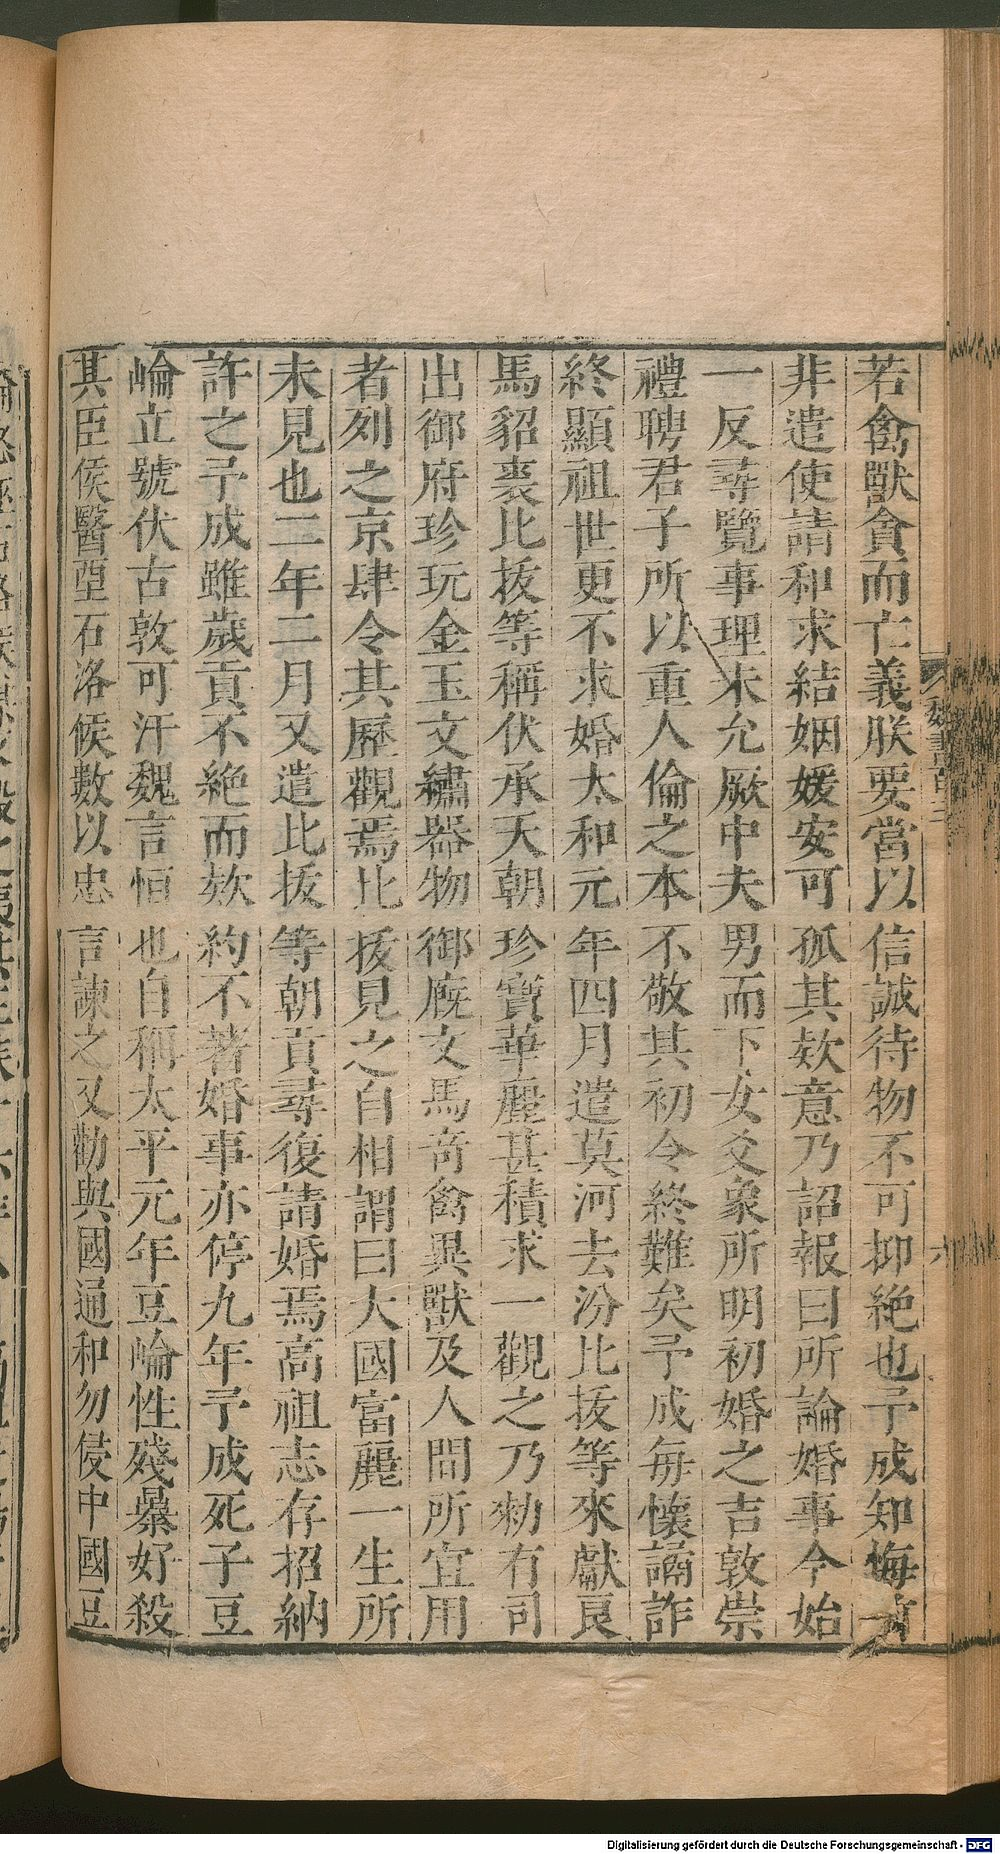 若禽獸貪而亡義朕要當以信誠待物不可抑絕也予成知悔前
非遣使請和求結姻媛安可孤其欵意乃詔報曰所論婚事今始
一反尋覽事理未允厥中夫男而下女爻象所明初婚之吉敦崇
禮聘君子所以重人倫之本不敬其初令終難矣予成每懷譎詐
終顯祖世更不求婚太和元年四月遣莫河去汾比拔等來獻良
馬貂裘比拔等稱伏承天朝珍寶華麗甚積求一觀之乃勑有司
出御府珍玩金玉文繡器物御廐文馬奇禽異獸及人間所宜用
者列之京肆令其歷觀焉比拔見之自相謂曰大國富麗一生所
未見也二年二月又遣比拔等朝貢尋復請婚焉高祖志存招納
許之予成雖歲貢不絕而欵約不著婚事亦停九年予成死子豆
崘立號伏古敦可汗魏言恒也自稱太平元年豆崘性殘暴好殺
其臣侯醫垔石洛候數以忠言諫之又勸與國通和勿侵中國豆
魏書百三
六
Digitalisierung gefördert durch die Deutsche Forschungsgemeinschaft - DFG